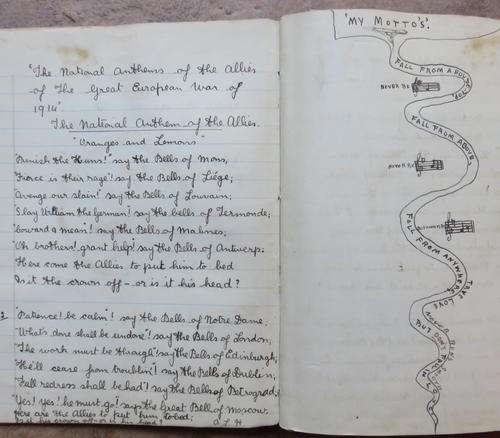 "The National Anthems of the Allies
of The Great European War of
1914"
The National Anthem of the Allies.
"Oranges and Lemons"
"Punish the Huns!" say the Bells of Mons,
"Fierce is their rage"! say the Bells of Liége;
"Avenge our slain! say the Bells of Louvain;
"Slay William the German! say the bells of Termonde;
"Coward & mean! say the Bells of Malines;
"Oh brothers! grant help! say the Bells of Antwerp.
Here come the Allies to put him to bed
Is it the crown off - or is it his head?
2 "Patience! be calm"! say the Bells of Notre Dame.
"What's done shall be undone"! say the Bells of London,
"The work must be thorough" say the Bells of Edinburgh,
"He'll cease from troublin'! say the Bells of Dublin,
"Full redress shall be had"! say the Bells of Petrograd;
"Yes! Yes! he must go"! says the Great Bell of Moscow.
Here are the Allies to put him to bed:
Is it his crown off - or is it his head? A L H
'MY MOTTO'S'.
FALL FROM A
NEVER BE
FALL FROM ABOVE
NEVER BE
FALL FROM ANYWHERE
TRUE LOVE
NEVER RUNS
BUT DON'T FALL
IN LOVE